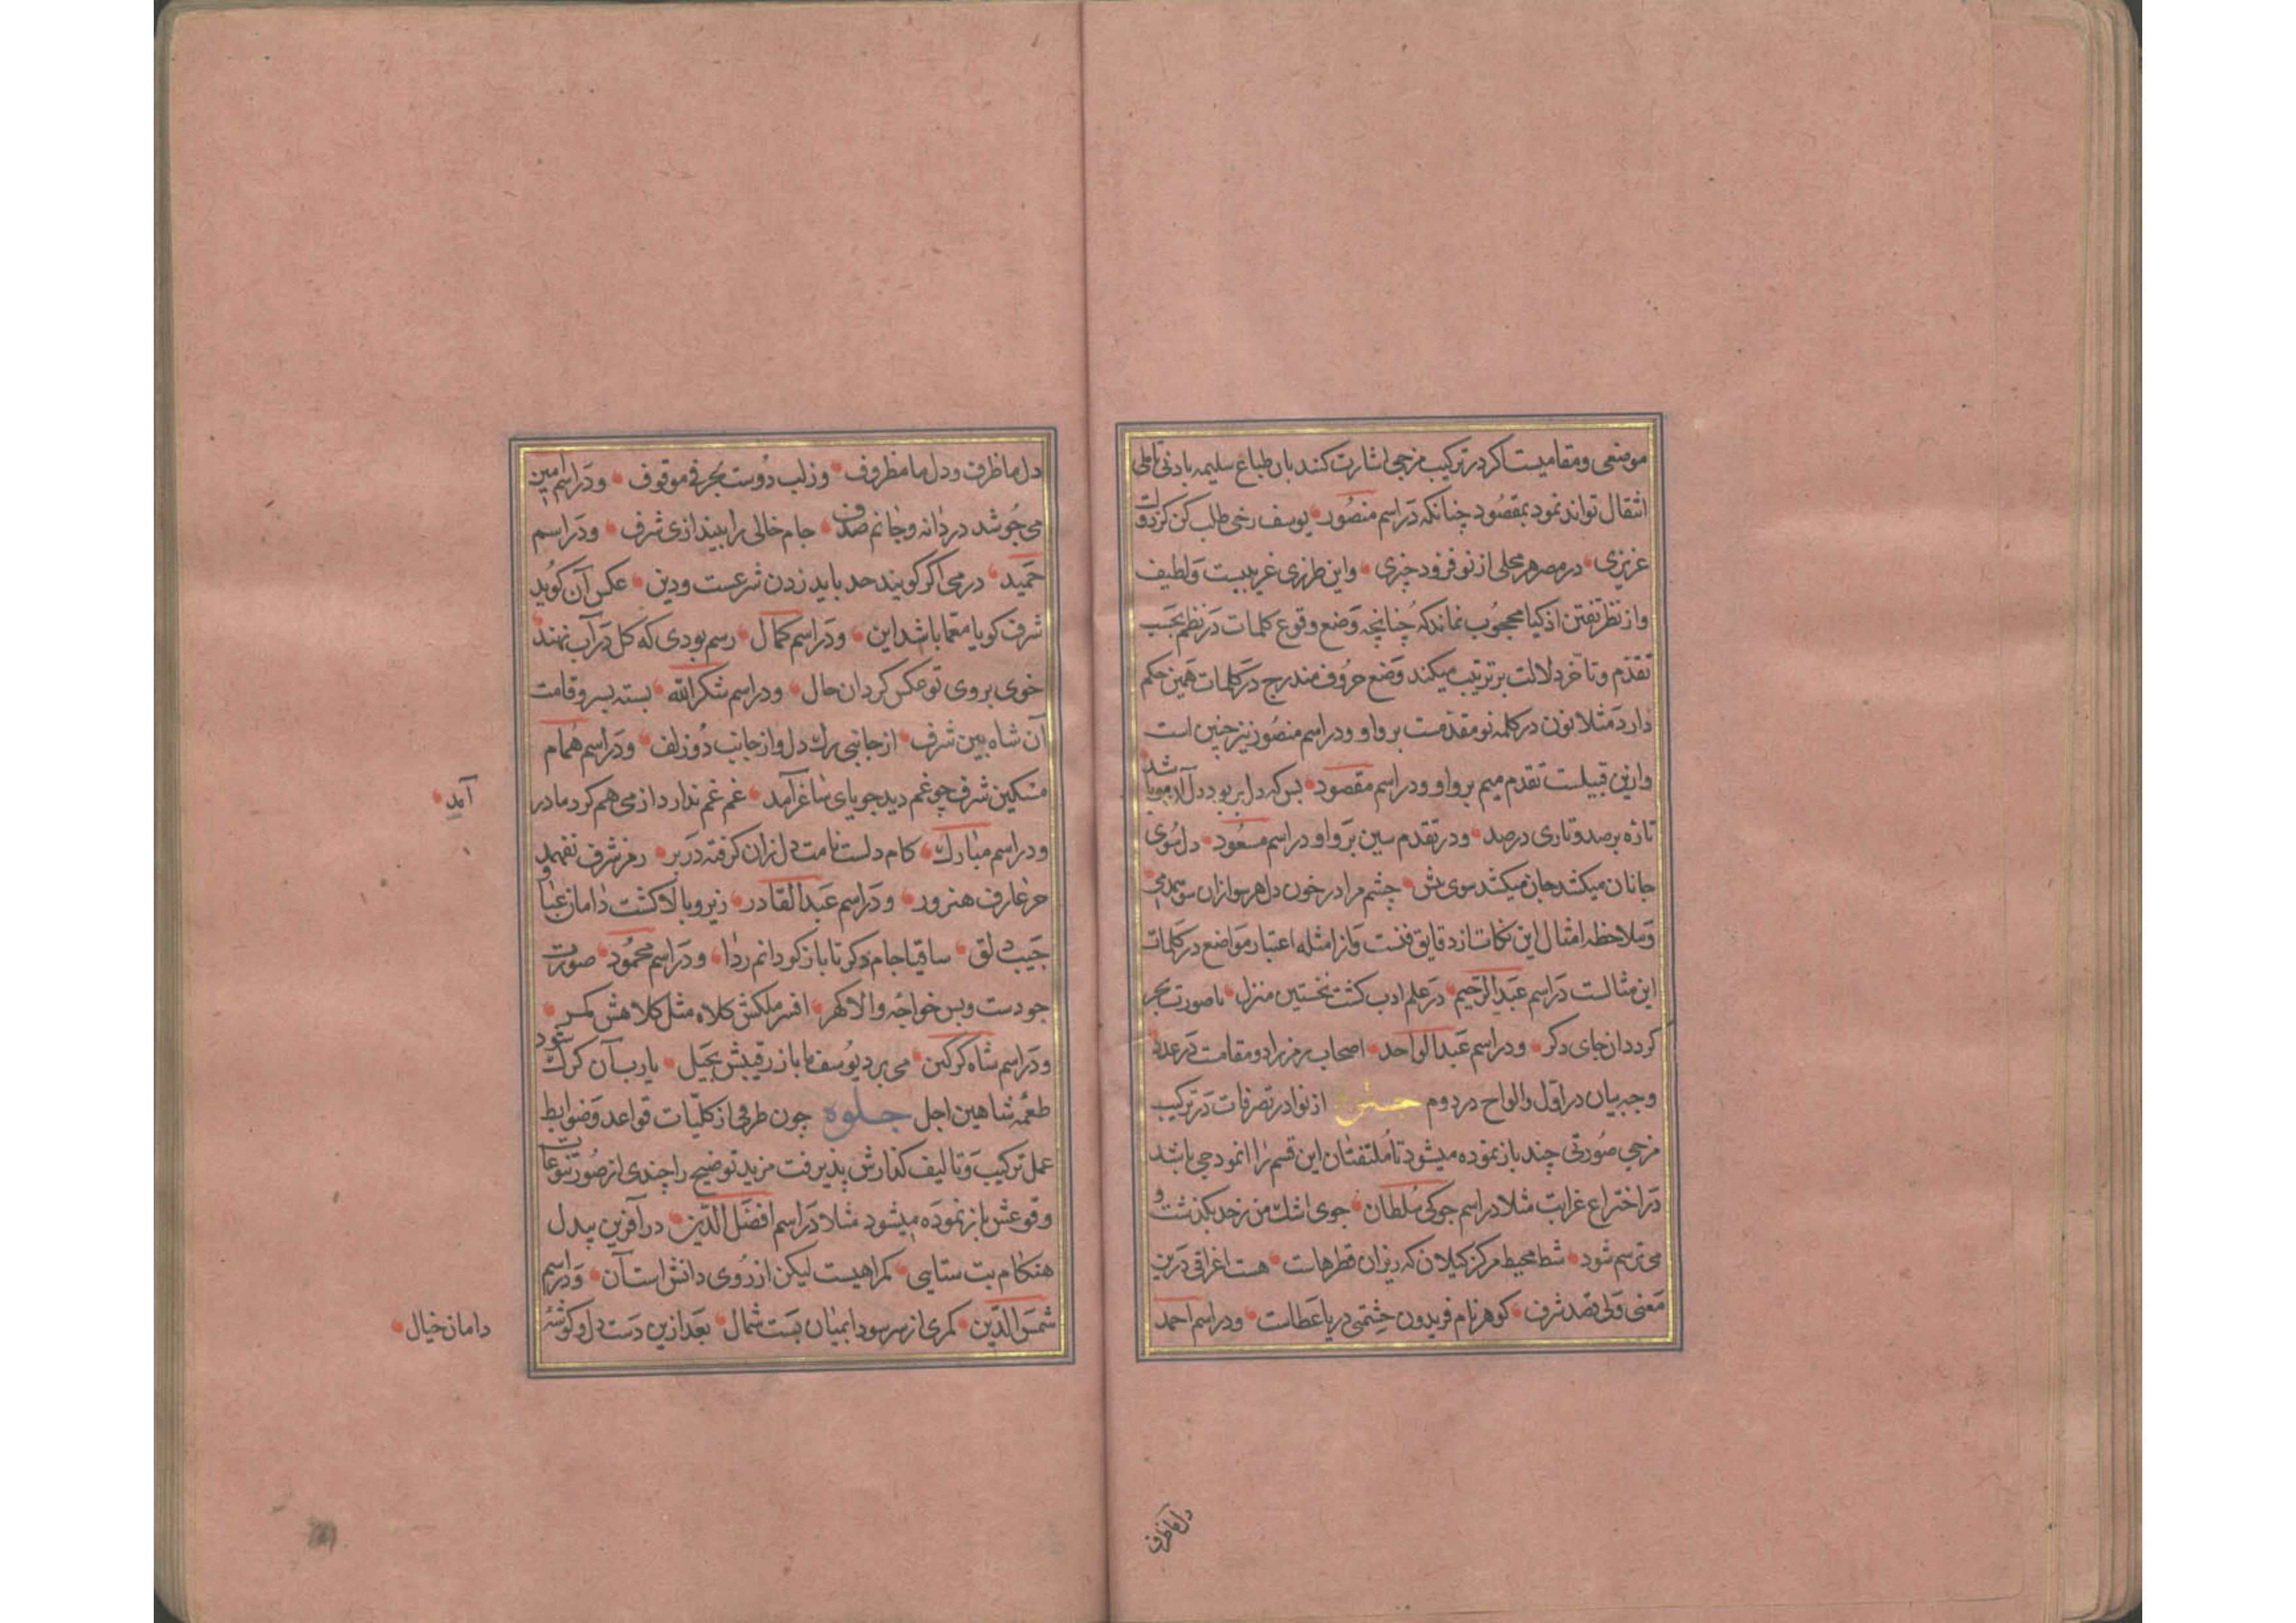 موضعی و مقامیست اکر در ترکیب مزجی اشارت کنند بان طباع سلیمه بادنی تاملی
انتقال تواند نمود بمقصود چنانکه در اسم منصور یوسف رخی طلب کن کز دولت
عزیزی در مصر هر محلی از نو فزود چیزی واین طرزی غریبست ولطیف
واز نظر تفتن اذکیا محجوب نماند که چنانچه وضع وقوع کلمات در نظم بحسب
تقدم وتاخر دلالت بر ترتیب میکند وضع حروف مندرج در کلمات همین حکم
دارد مثلا نون در کلمه نو مقدمست بر واو ودر اسم منصور نیز چنین است
وازین قبیلست تقدم میم بر واو ودر اسم مقصود بس که دل بر بود دل آرام شد
تازه بر صد وتاری در صد ودر تقدم سین بر واو در اسم مسعود دل سوی
جانان میکشد جان میکشد سوی تنش چشم مرا در خون دل هر سو ازان سو
وملاحظه امثال این نکات از دقایق فنست واز امثله اعتبار مواضع در کلمات
این مثالست در اسم عبد الرحیم در علم ادب کشت نخستین منزل تا صورت بحر
کردد از جای دکر ودر اسم عبد الواحد اصحاب رمز را دو مقامت در عدد
وجه بیان در اول والواح در دوم از نوادر تصرفات در ترکیب
مزجی صورتی چند باز نموده میشود تا ملتفتان این قسم را انموذجی باشد
در اختراع غرایب مثلا در اسم جوکی سلطان جوی اشک من ز حد بکذشت و
می ترسم شود شط محیط مرکز کیلان که ریزان قطرهاست هست اغراقی درین
معنی ولی قصد شرف کوهر نام فریدون حشمتی دریا عطاست ودر اسم احمد
دل ما ظرف
دل ما ظرف ودل ما مظروف وز لب دوست بحرفی موقوف ودر اسم امین
می جوشد دردانه وجانم صدف جام خالی را بیندازی شرف ودر اسم
حمید در می اکر کویند حد باید زدن شرعست ودین عکس آن کوید
شرف کویا معما باشد این ودر اسم کمال رسم بودی که کل در آب نهند
خوی بروی تو عکس کردان حال ودر اسم شکر الله بسته بسرو قامت
آن شاه بین شرف از جانبی رک دل واز جانب دو زلف ودر اسم همام
مسکین شرف چو غم دید جویای ساغر آمد غم غم ندارد از می هم کرد ما در
آمد
ودر اسم مبارک کام دلست نامت دل زان کرفته در بر رمز شرف نفهمد
جز عارف هنرور ودر اسم عبد القادر زیر وبالا کشت دامان عبا و
جیب دلق ساقیا جام دکر تا باز کردانم ردا ودر اسم محمود صورت
جودست وبس خواجه والا کهر افسر ملکش کلاه مثل کلاهش کمر
ودر اسم شاه کرکین می برد یوسف ما باز رقیبش بحیل یا رب آن کرک شود
طعمه شاهین اجل جلوه چون طرفی از کلیات قواعد وضوابط
عمل ترکیب وتالیف کذارش پذیرفت مزید توضیح را چندی از صور تنوعات
وقوعش باز نموده میشود مثلا در اسم افضل الدین در آفرین بیدل
هنکام بت ستایی کمراهیست لیکن از روی دانش است آن ودر اسم
شمس الدین کمری از سر سودا بمیان بست شمال بعد ازین دست دل وکوشه
دامان خیال